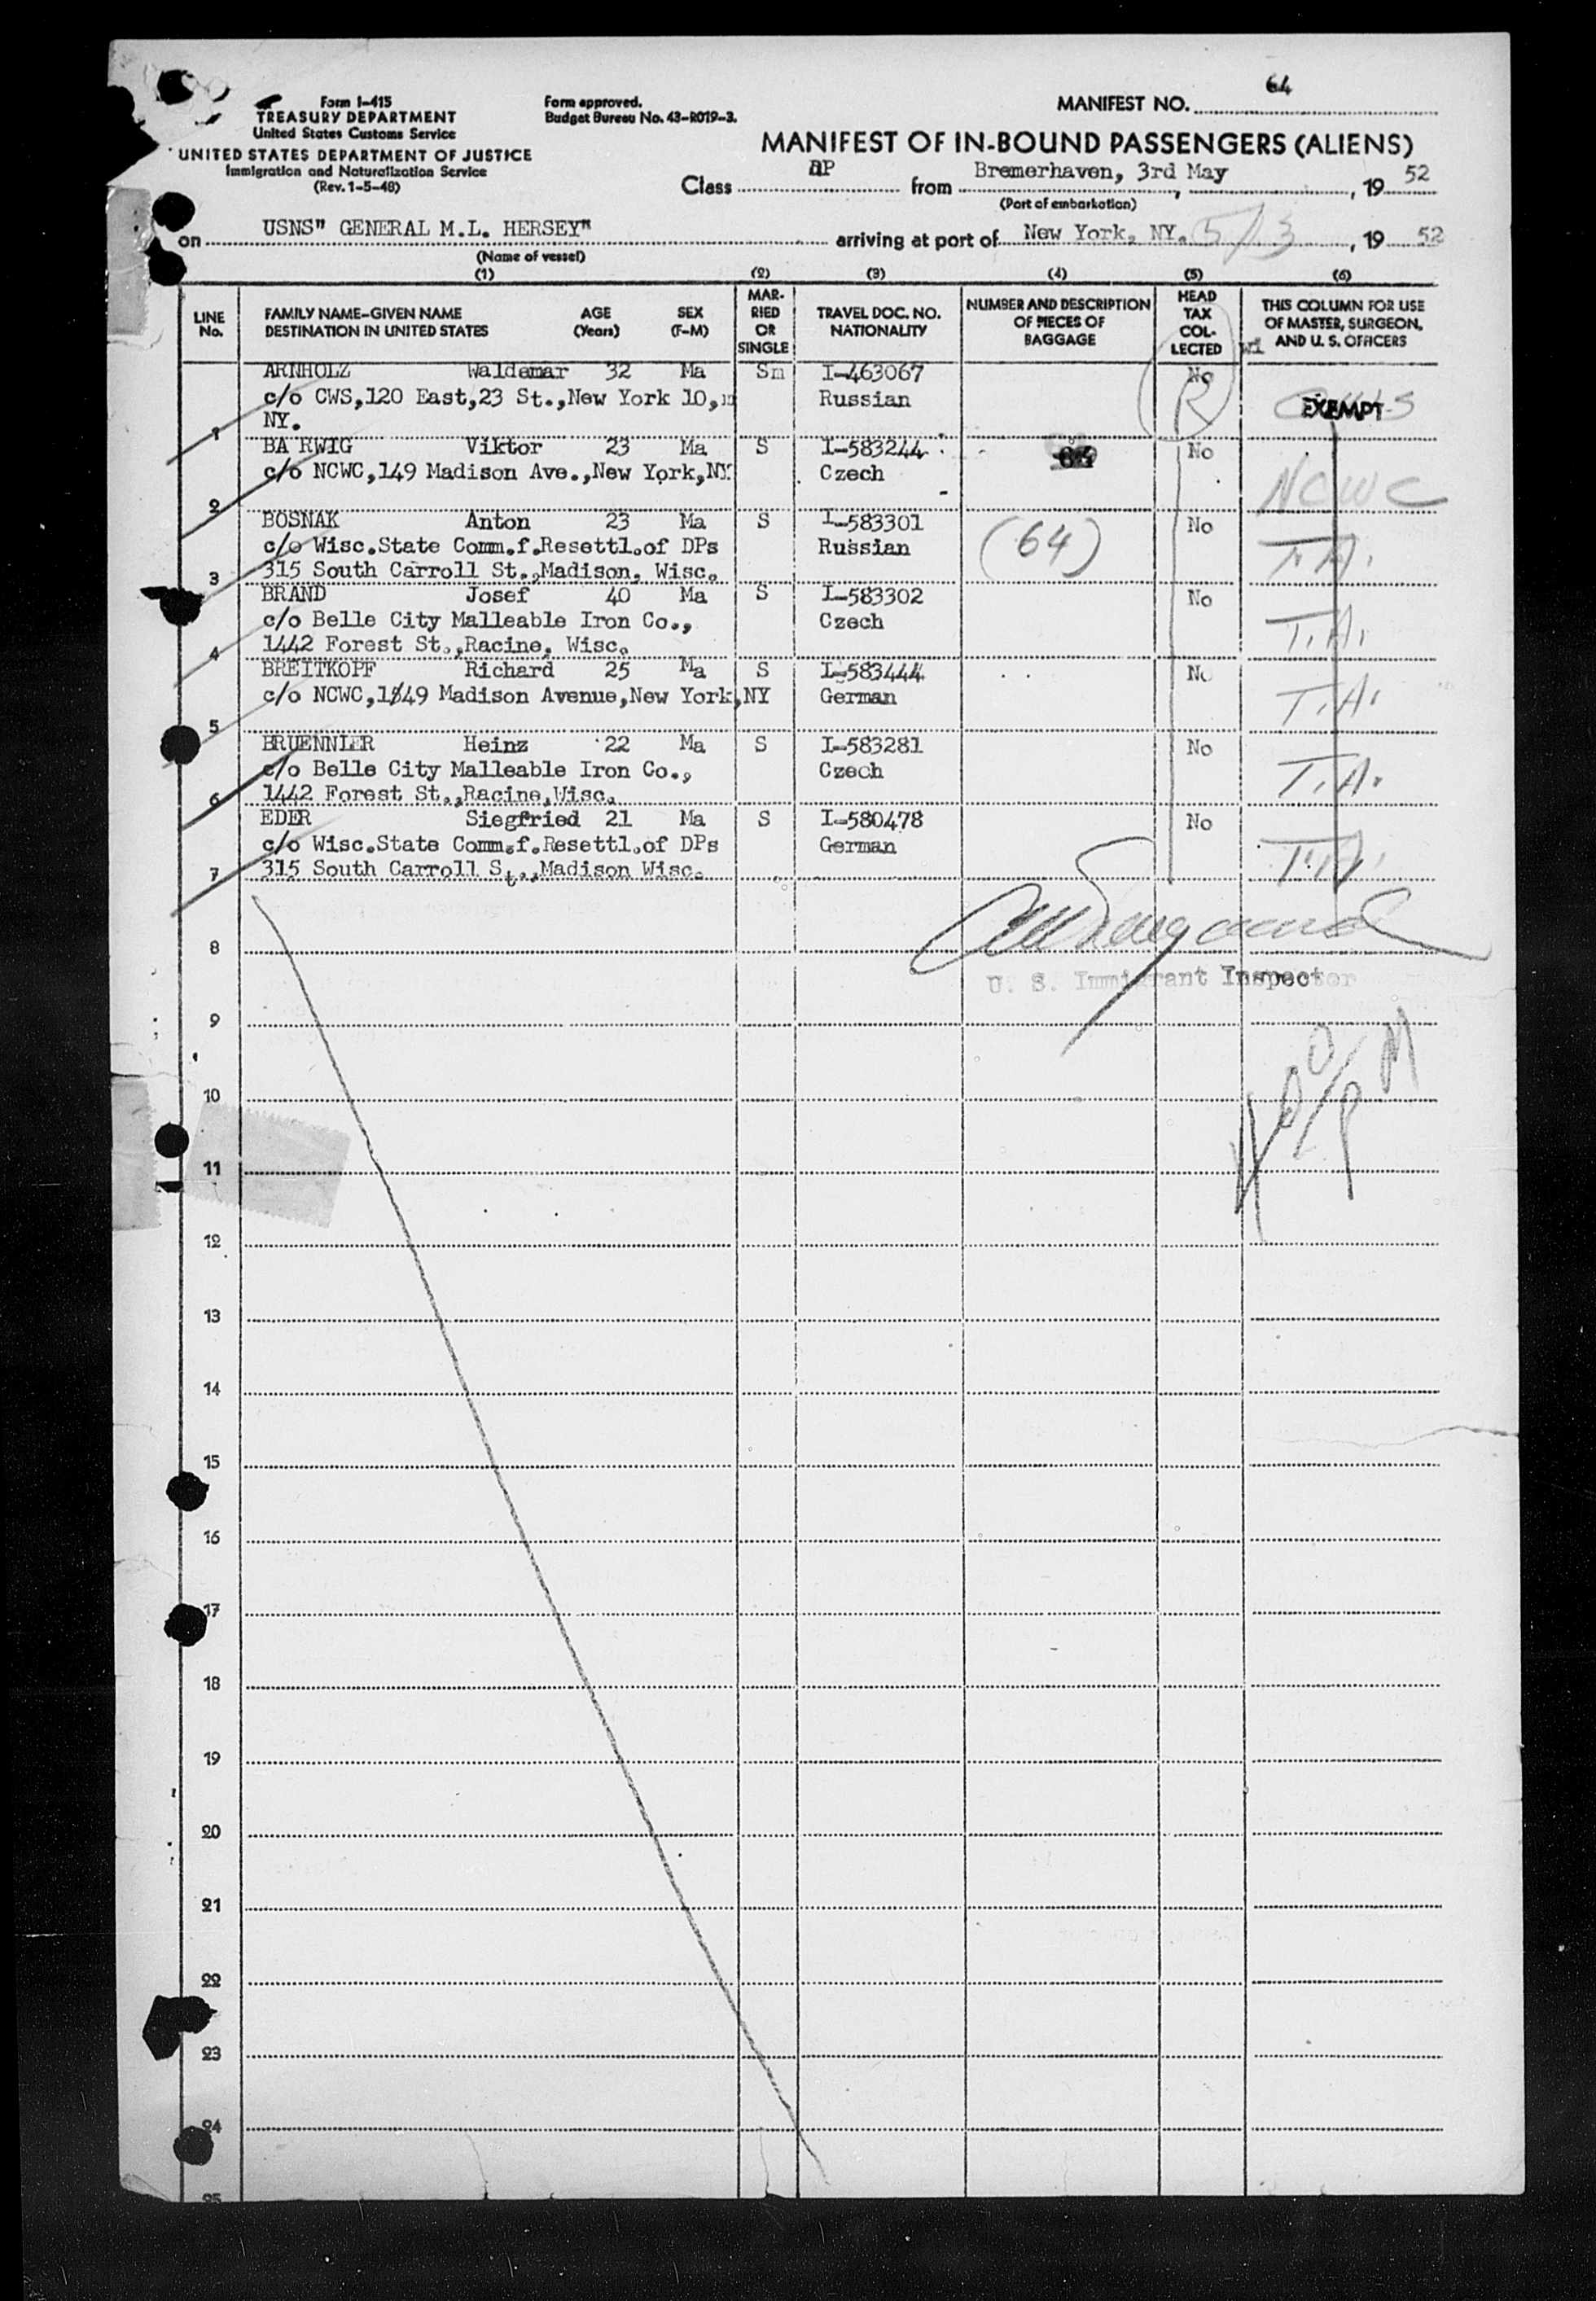 64
Form I-415
TREASURY DEPARTMENT
United States Customs Service
UNITED STATES DEPARTMENT OF JUSTICE
Immigration and Naturalization Service
(Rev. 1-5-48)
Form approved.
Budget Bureau No. 43-R019-3.
MANIFEST NO.
MANIFEST OF IN-BOUND PASSENGERS (ALIENS)
Class DP from Bremerhaven, 3rd May, 19 52
(Port of embarkation)
on USNS" GENERAL M.L. HERSEY" arriving at port of New York, NY. 5/13, 19 52
(Name of vessel)
(1) (2) (3) (4) (5) (6)
LINE No.
FAMILY NAME-GIVEN NAME AGE SEX
DESTINATION IN UNITED STATES (Years) (F-M)
MAR-RIED OR SINGLE
TRAVEL DOC. NO. NATIONALITY
NUMBER AND DESCRIPTION OF PIECES OF BAGGAGE
HEAD TAX COL-LECTED
THIS COLUMN FOR USE OF MASTER, SURGEON, AND U. S. OFFICERS
ARNHOLZ Waldemar 32 Ma Sm I-463067 No
c/o CWS,120 East,23 St.,New York 10, Russian R EXEMPT
NY.
1
BA RWIG Viktor 23 Ma S I-583244 No
c/o NCWC,149 Madison Ave.,New York,NY. Czech 64 NCWC
2
BOSNAK Anton 23 Ma S I-583301 No
c/o Wisc.State Comm.f.Resettl.of DPs Russian (64) T.A.
3 315 South Carroll St.,Madison, Wisc.
BRAND Josef 40 Ma S I-583302 No
c/o Belle City Malleable Iron Co., Czech T.A.
4 1442 Forest St.,Racine, Wisc.
BREITKOPF Richard 25 Ma S I-583444 No
c/o NCWC,1149 Madison Avenue,New York,NY German T.A.
5
BRUENNLER Heinz 22 Ma S I-583281 No
c/o Belle City Malleable Iron Co., Czech T.A.
6 1442 Forest St.,Racine,Wisc.
EDER Siegfried 21 Ma S I-580478 No
c/o Wisc.State Comm.f.Resettl.of DPs German T.A.
7 315 South Carroll St.,Madison Wisc.
8
U. S. Immigrant Inspector
9
10
11
12
13
14
15
16
17
18
19
20
21
22
23
24
25